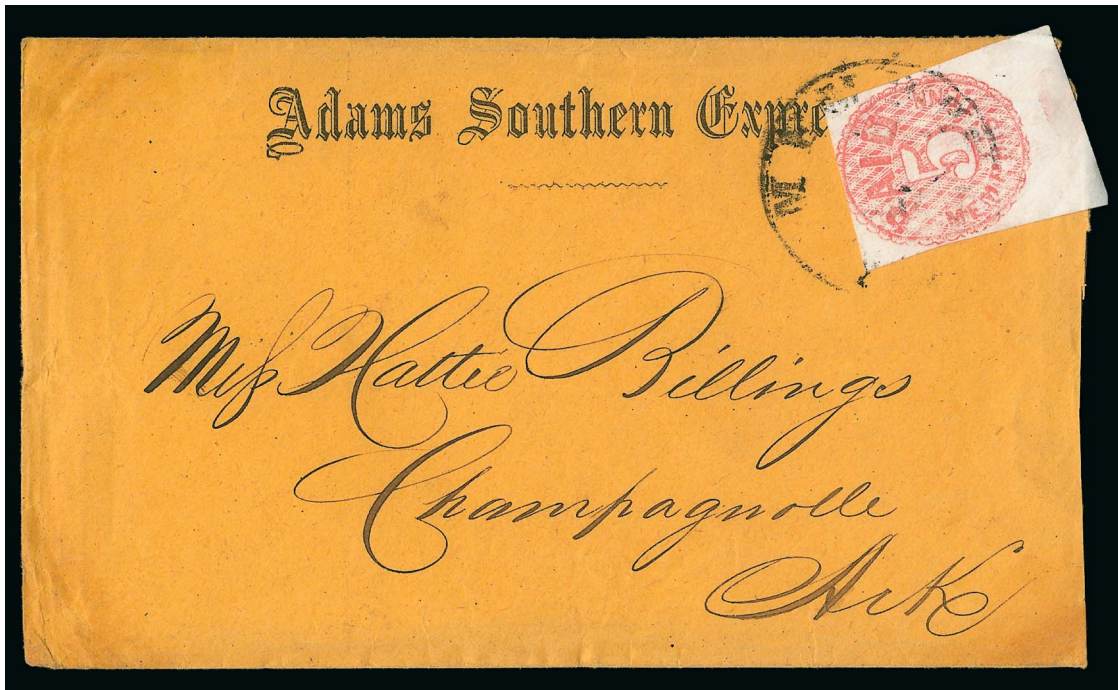 Adams Southern Expre
PAID
5
MEM
MEMPH
Miss Hattie Billings
Champagnolle
Arks